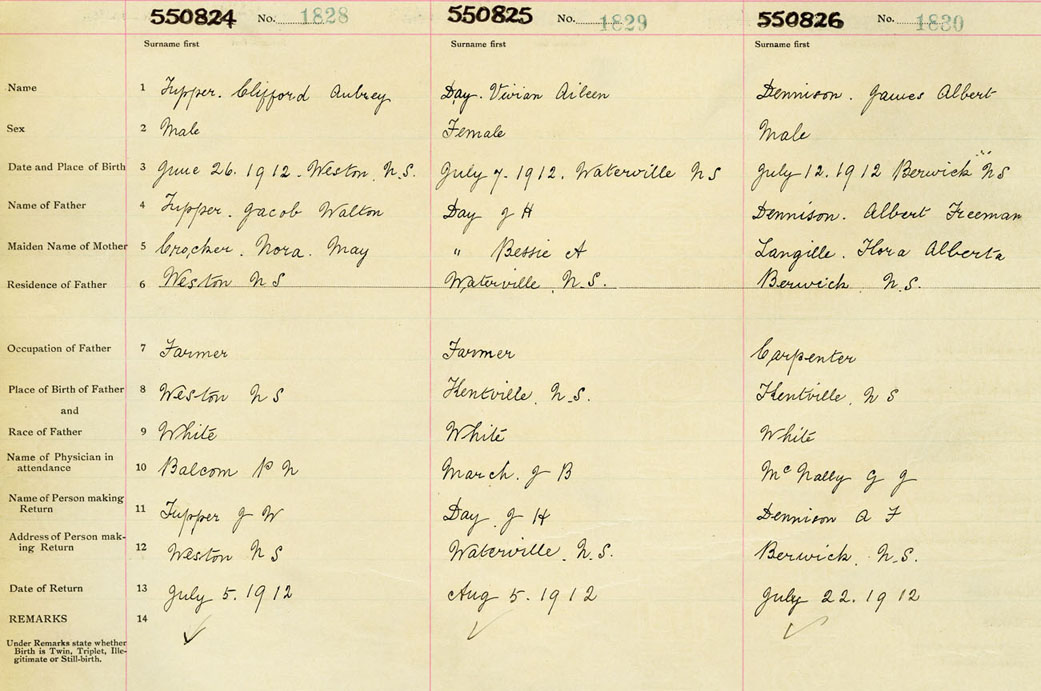 550824 No. 1828 550825 No. 1829 550826 No. 1830
Surname first Surname first Surname first
Name 1 Tupper. Clifford Aubrey Day. Vivian Aileen Dennison. James Albert
Sex 2 Male Female Male
Date and Place of Birth 3 June 26. 1912. Weston N.S. July 7. 1912. Waterville N S July 12. 1912 Berwick N S
Name of Father 4 Tupper. Jacob Walton Day J H Dennison. Albert Freeman
Maiden Name of Mother 5 Crocker. Nora. May " Bessie A Langille. Flora Alberta
Residence of Father 6 Weston N S Waterville N.S. Berwick N.S.
Occupation of Father 7 Farmer Farmer Carpenter
Place of Birth of Father 8 Weston N S Kentville. N.S. Kentville. N S
and
Race of Father 9 White White White
Name of Physician in
attendance 10 Balcom P N March. J B McNally G J
Name of Person making
Return 11 Tupper J W Day. J H Dennison A F
Address of Person mak-
ing Return 12 Weston N S Waterville. N.S. Berwick. N.S.
Date of Return 13 July 5. 1912 Aug 5. 1912 July 22. 1912
REMARKS 14
Under Remarks state whether
Birth is Twin, Triplet, Ille-
gitimate or Still-birth.